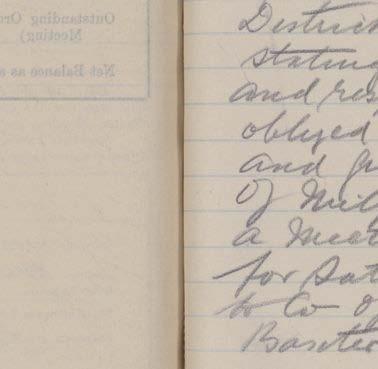 Outstanding Or
Meeting)
Net Balance as
Distri
stating
and res
oblged
and
Of
a Meet
for Sat
to Co of
Baxter